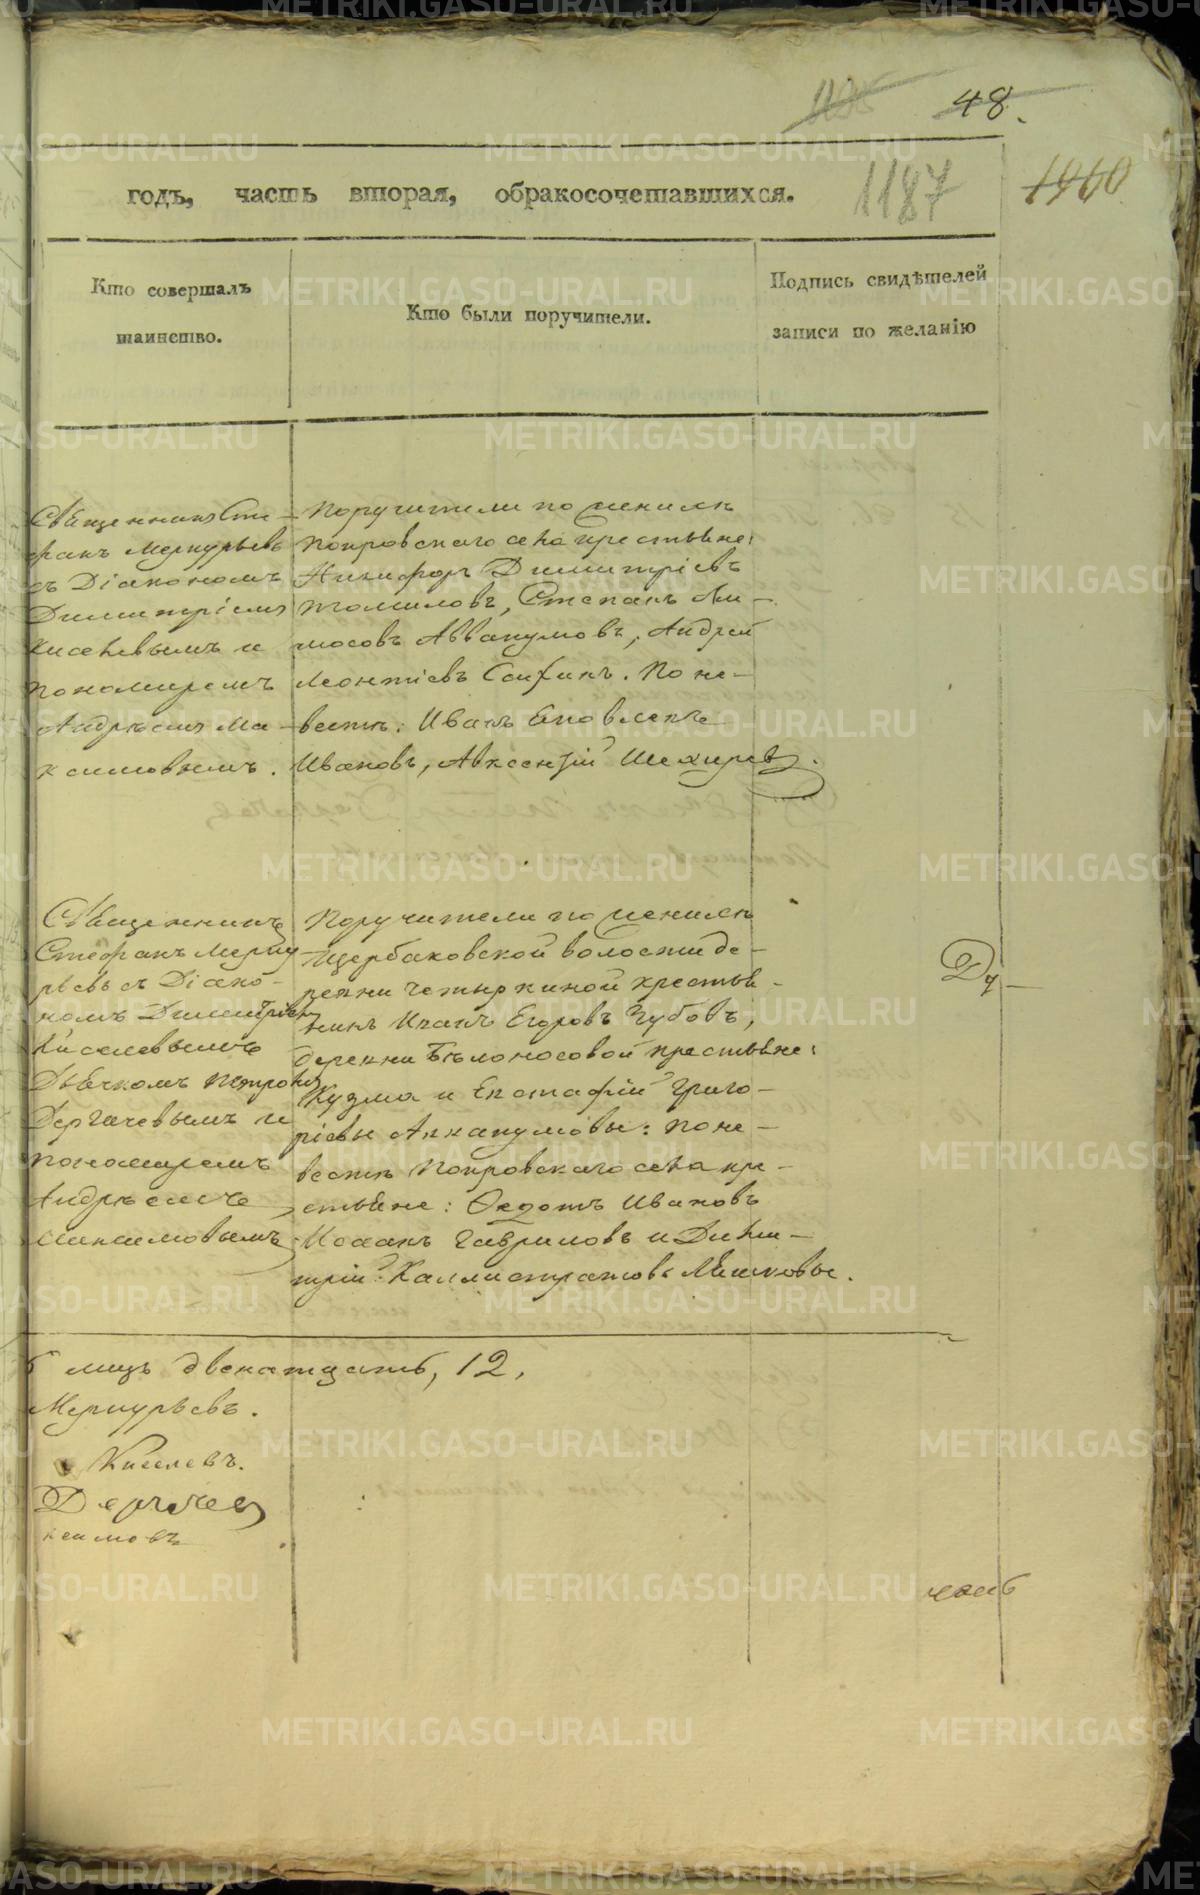 48.
1187
1960
годъ, часть вторая, обракосочетавшихся.
Кто совершалъ
таинство.
Кто были поручители.
Подпись свидѣтелей
записи по желанію
Священникъ Сте-
фанъ Меркурьевъ
съ Діакономъ
Димитріемъ
Киселевымъ и
Пономаремъ
Андрѣемъ Ма-
ксимовымъ.
Поручители по женихѣ
Покровскаго села крестьяне:
Никифоръ Димитріевъ
Томиловъ, Степанъ Ам-
мосовъ Аввакумовъ, Андрей
Леонтіевъ Соифинъ. По не-
вестѣ: Иванъ
Ивановъ, Авксентій
Священникъ
Стефанъ Мерку
рьевъ съ Діако-
номъ Димитріем
Киселевымъ
Дьячкомъ Петромъ
Дергачевымъ и
пономаремъ
Андрѣемъ
Максимовымъ
Поручители по женихѣ
Щербаковской волости де-
ревни Четыркиной крестья-
нинъ Иванъ Егоровъ Зубовъ,
деревни Бѣлоносовой крестьяне:
Кузма и Евстафій Григо-
рьевы Аввакумовы: По не-
вестѣ Покровскаго села кре-
стьяне: Федотъ Ивановъ
Исаакъ Гавриловъ и Дими-
трій Каллистратовъ
Ду-
лицъ двенатцать, 12,
Меркурьевъ.
Киселевъ.
Дергачев
ксимовъ
часть
METRIKI.GASO-URAL.RU